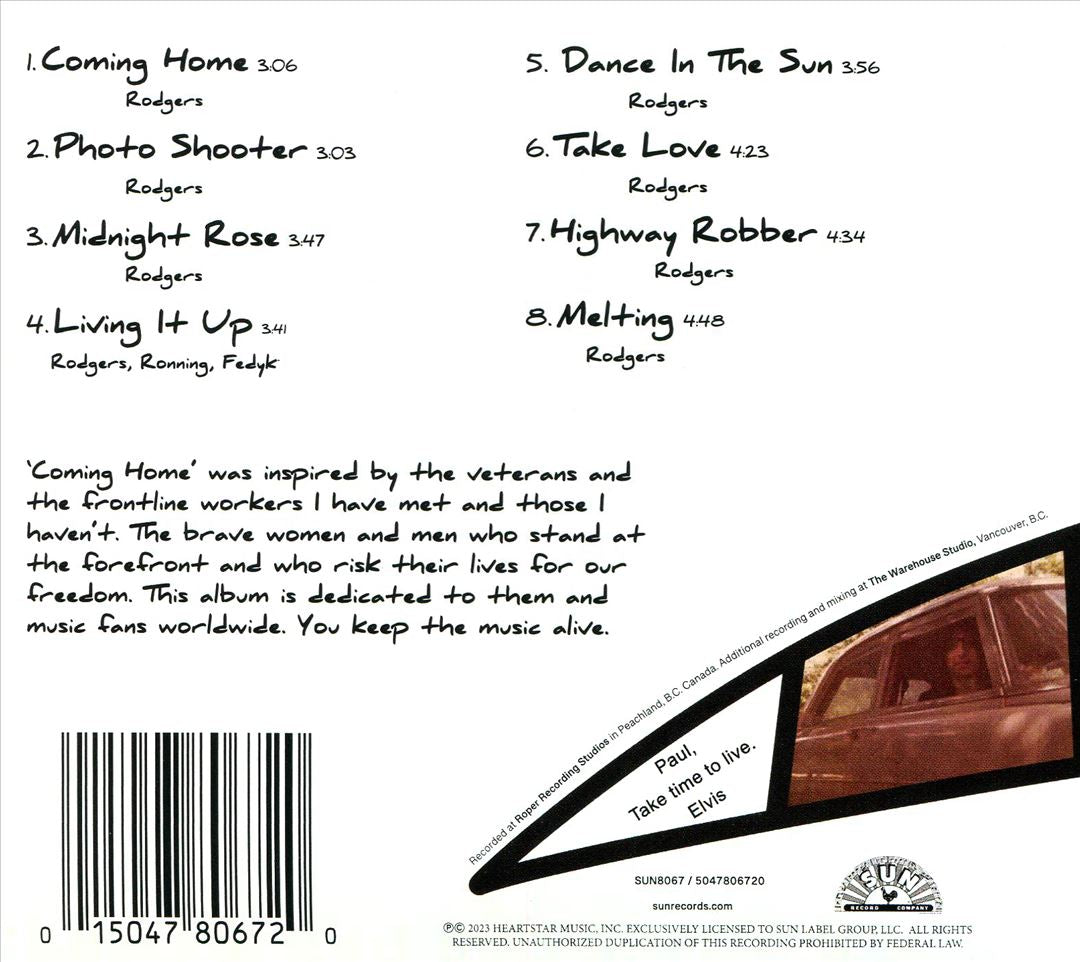 1. Coming Home 3:06
Rodgers
2. Photo Shooter 3:03
Rodgers
3. Midnight Rose 3:47
Rodgers
4. Living It Up 3:41
Rodgers, Ronning, Fedyk
5. Dance In The Sun 3:56
Rodgers
6. Take Love 4:23
Rodgers
7. Highway Robber 4:34
Rodgers
8. Melting 4:48
Rodgers
'Coming Home' was inspired by the veterans and
the frontline workers I have met and those I
haven't. The brave women and men who stand at
the forefront and who risk their lives for our
freedom. This album is dedicated to them and
music fans worldwide. You keep the music alive.
Recorded at Roper Recording Studios in Peachland, B.C. Canada. Additional recording and mixing at The Warehouse Studio, Vancouver, B.C.
Paul,
Take time to live.
Elvis
0 15047 80672 0
SUN8067 / 5047806720
sunrecords.com
SUN
RECORD COMPANY
℗© 2023 HEARTSTAR MUSIC, INC. EXCLUSIVELY LICENSED TO SUN LABEL GROUP, LLC. ALL RIGHTS
RESERVED. UNAUTHORIZED DUPLICATION OF THIS RECORDING PROHIBITED BY FEDERAL LAW.